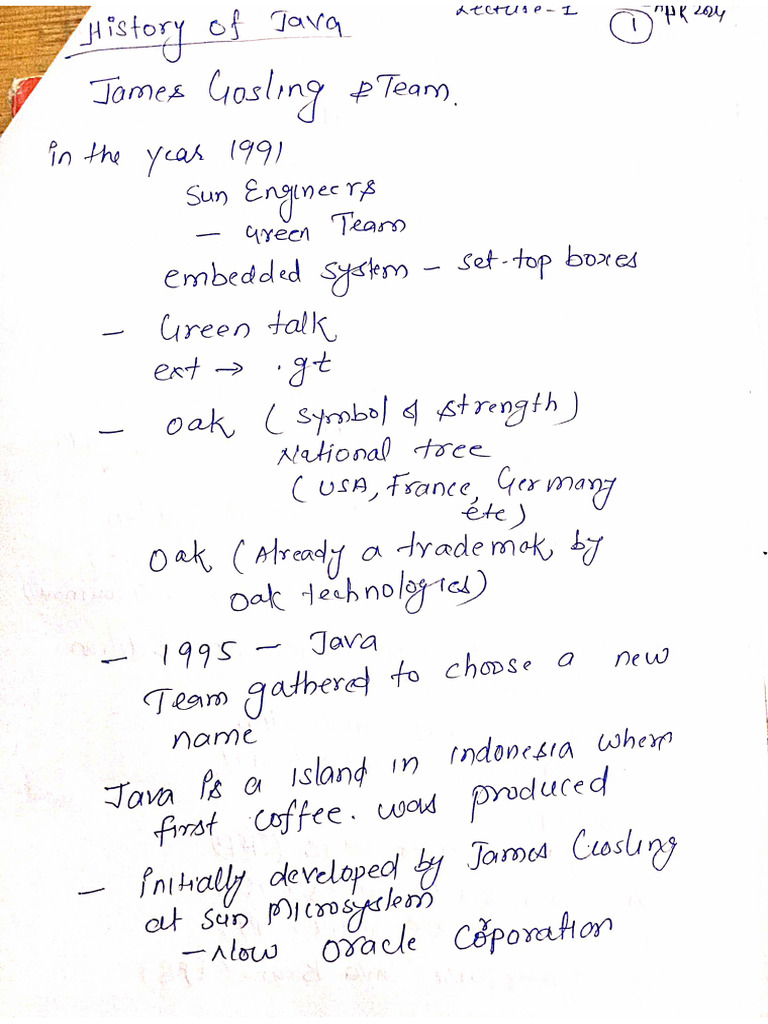 History of Java
Lecture-1
1
2024
James Gosling & Team.
in the year 1991
Sun Engineers
– Green Team
embedded system – set-top boxes
– Green talk
ext → .gt
– Oak ( symbol of strength )
National tree
( USA, France, Germany
etc )
Oak ( Already a trademak by
Oak technologies )
– 1995 – Java
Team gathered to choose a new
name
Java is a island in indonesia where
first coffee. was produced
– initially developed by James Gosling
at sun Microsystem
– Now Oracle Corporation